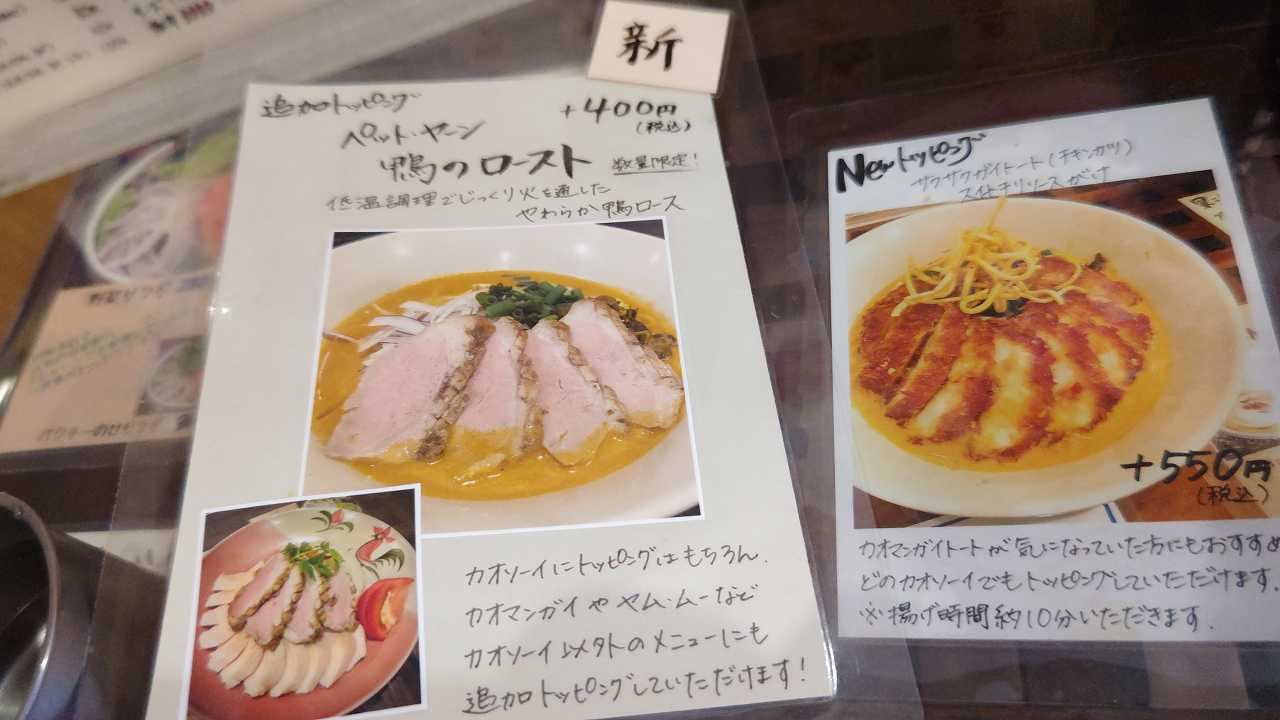 新
追加トッピング
+400円
(税込)
ペット・ヤーン
鴨のロースト
数量限定!
低温調理でじっくり火を通した
やわらか鴨ロース
カオソーイにトッピングはもちろん、
カオマンガイや ヤム・ムー など
カオソーイ以外のメニューにも
追加トッピングしていただけます!
Newトッピング
サクサクガイトート(チキンカツ)
スイートチリソースがけ
+550円
(税込)
カオマンガイトートが気になっていた方にもおすすめ
どのカオソーイでもトッピングしていただけます。
※揚げ時間約10分いただきます.